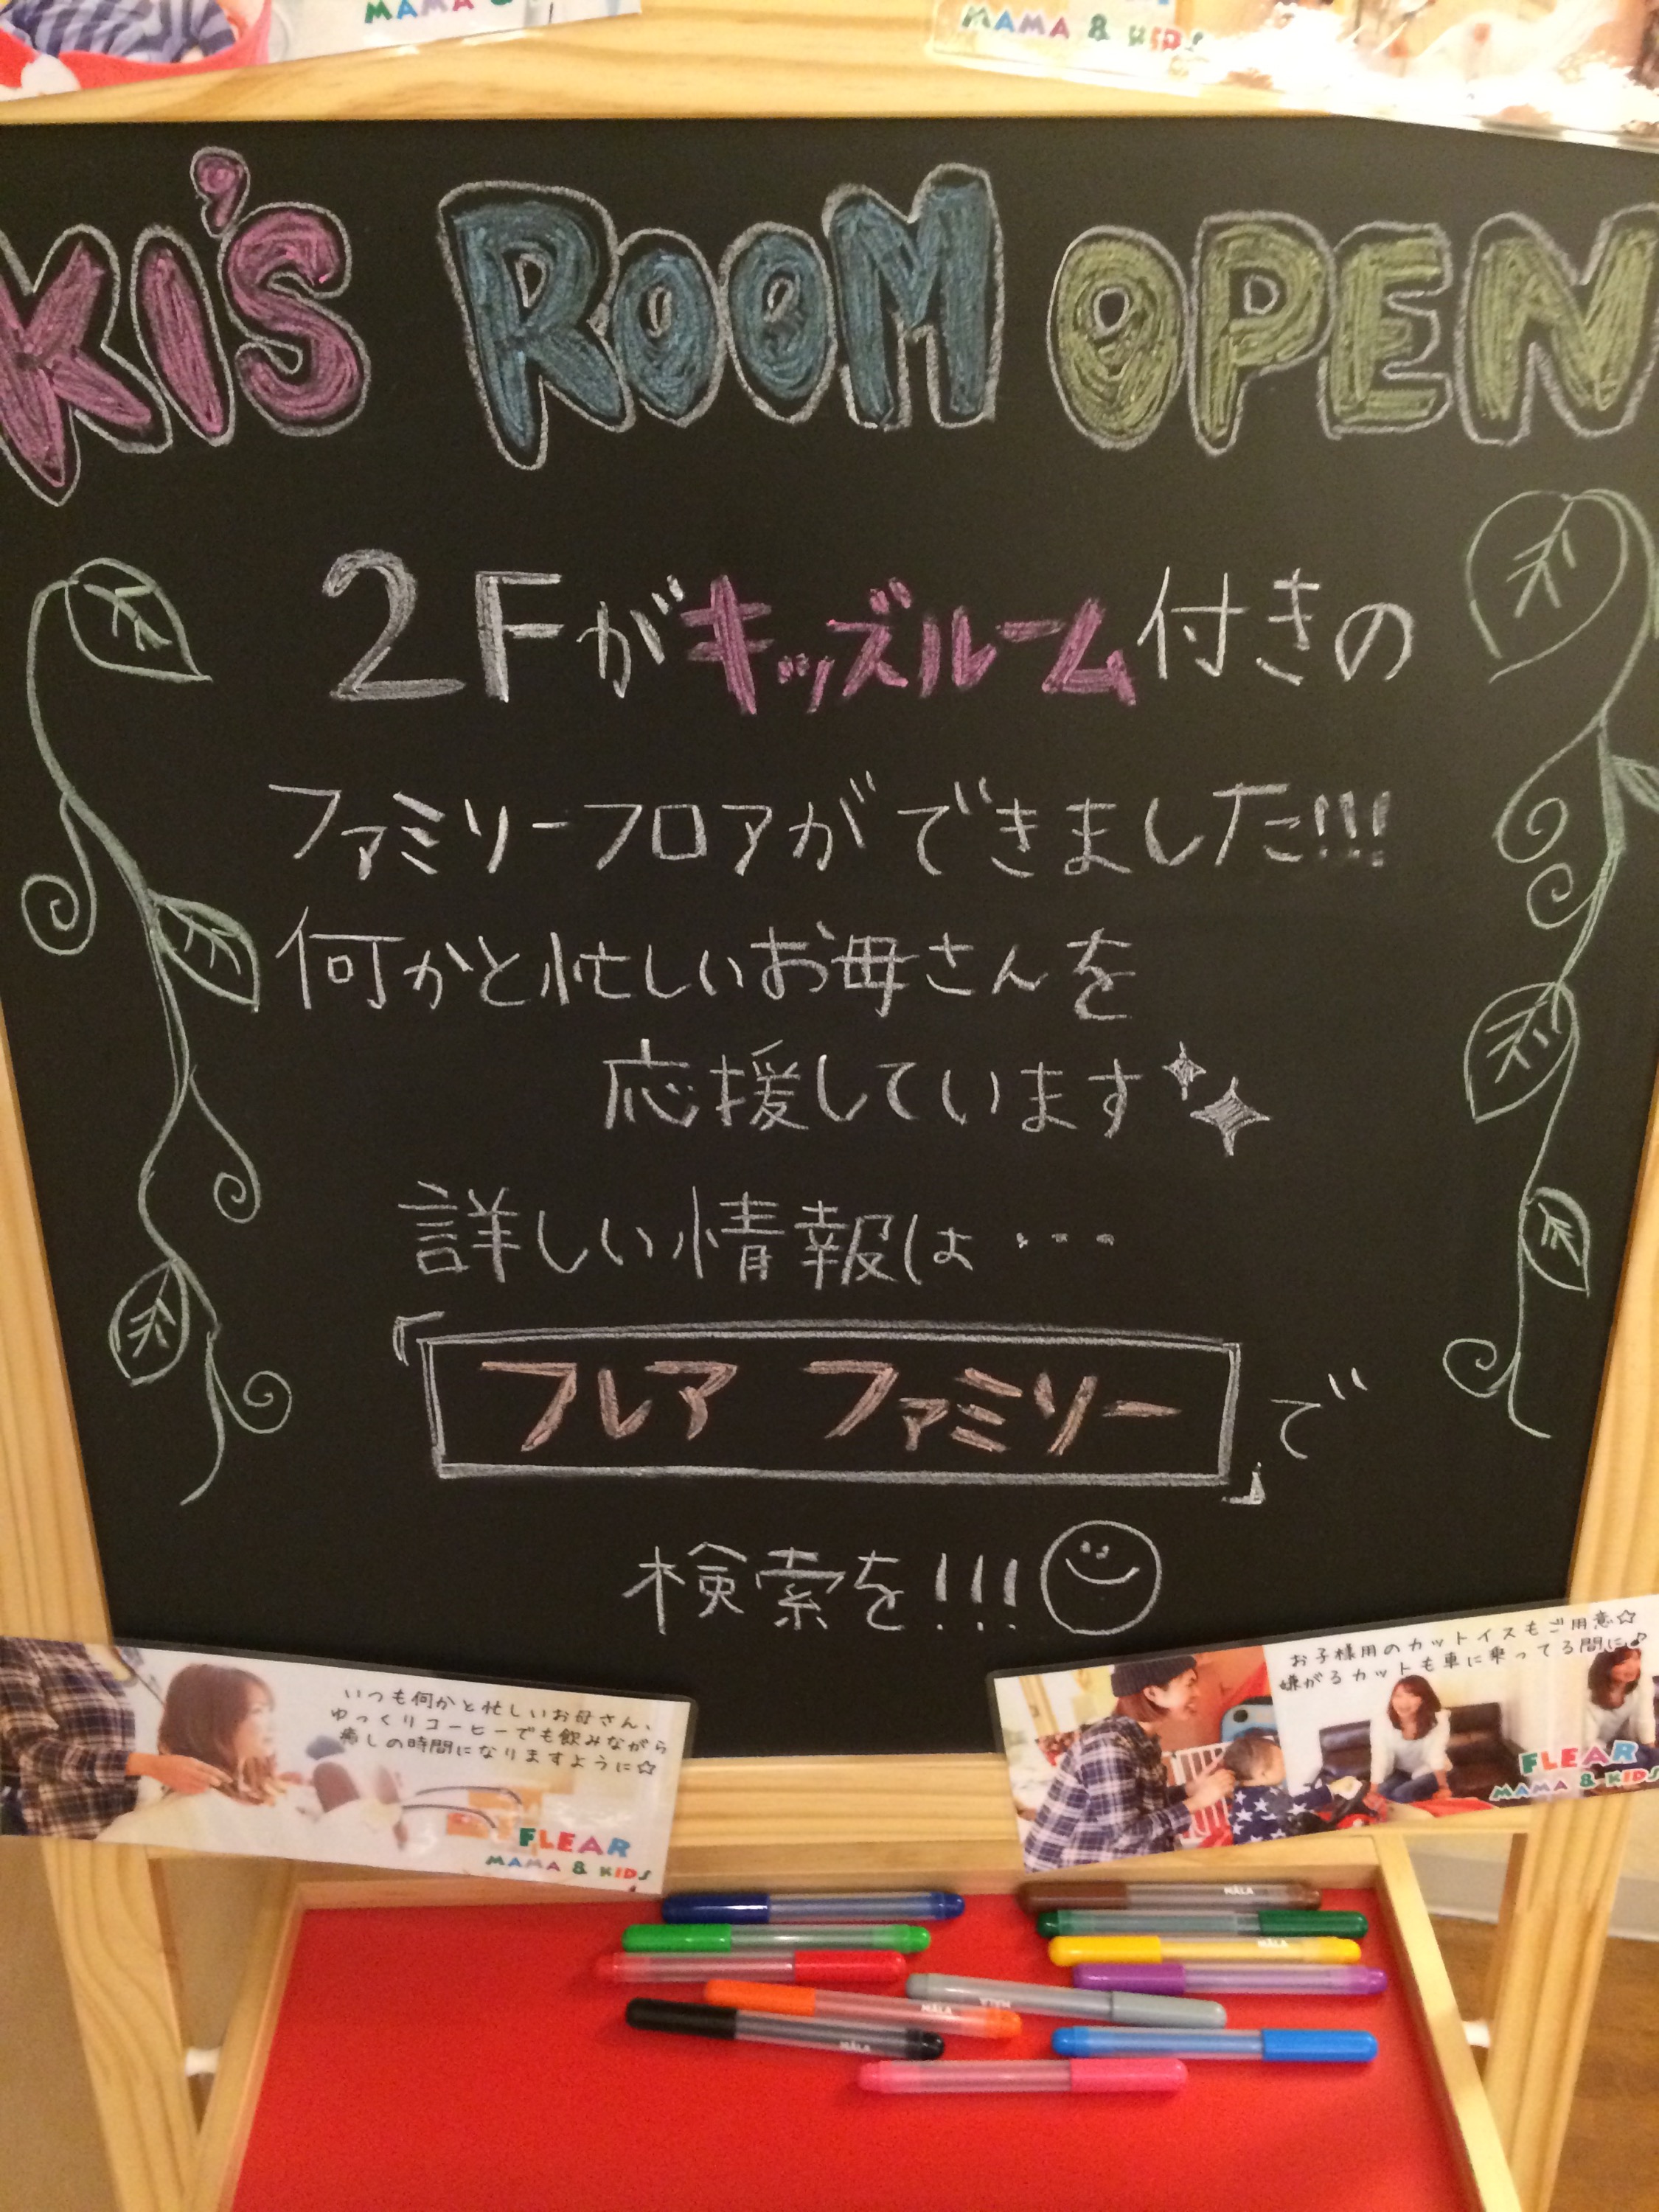 MAMA &
MAMA & KIDS
KI'S ROOM OPEN
2Fがキッズルーム付きの
ファミリーフロアができました!!!
何かと忙しいお母さんを
応援しています
詳しい情報は・・・
「フレア ファミリー」で
検索を!!!
いつも何かと忙しいお母さん、
ゆっくりコーヒーでも飲みながら
癒しの時間になりますように☆
FLEAR
MAMA & KIDS
お子様用のカットイスもご用意☆
嫌がるカットも車に乗ってる間に♪
FLEAR
MAMA & KIDS
MÅLA
MÅLA
MÅLA
MÅLA
MÅLA